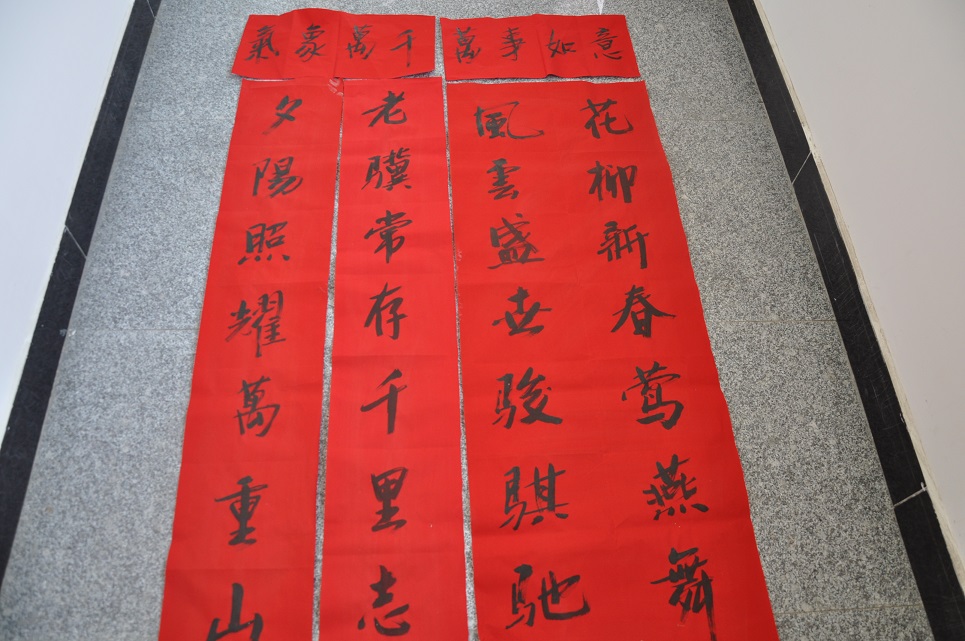 氣象萬千
萬事如意
花柳新春莺燕舞
風雲盛世駿騏馳
老驥常存千里志
夕陽照耀萬重山